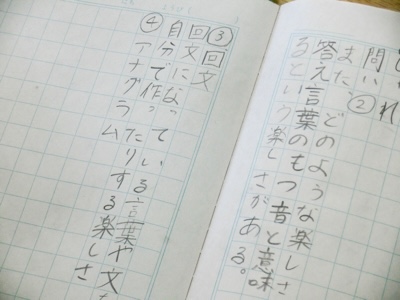 問い②
また、どのような楽しさ
答え言葉のもつ音と意味
るという楽しさがある。
③回文
回文になっている言葉や文
自分で作ったりする楽しさ
④アナグラム